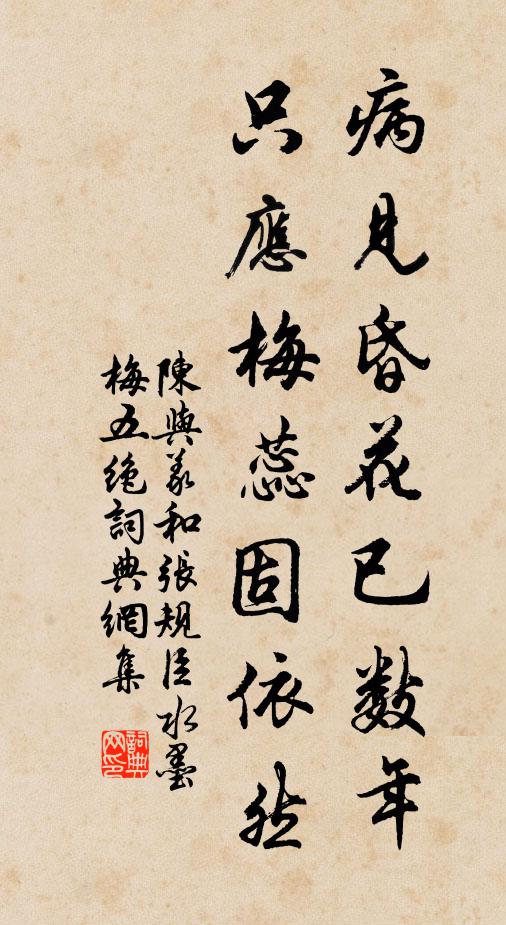 病見昏花已數年
只應梅蕊固依然
陳與義和張規臣水墨
梅五絶詞典網集
詞典
网印